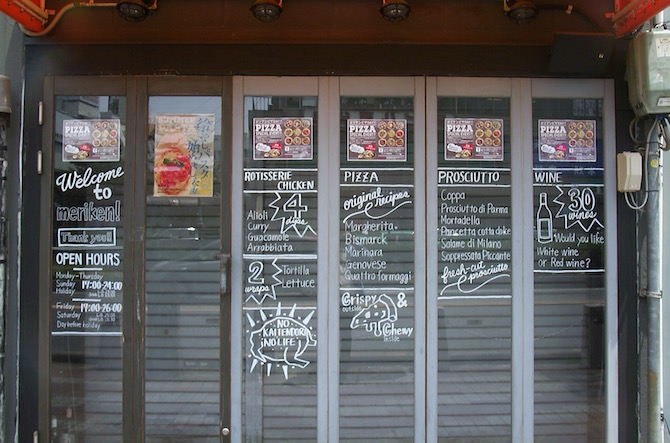 PIZZA
SPECIAL EVENT!
Welcome
to
meriken!
Thank you!!
OPEN HOURS
Monday-Thursday
Sunday
Holiday
17:00-24:00
Friday
Saturday
Day before holiday
17:00-26:00
PIZZA
SPECIAL EVENT!
ROTISSERIE
CHICKEN
4
dips
Aïoli
Curry
Guacamole
Arrabbiata
2
wraps
Tortilla
Lettuce
NO
KAITENDORI
¡NO LIFE!
PIZZA
SPECIAL EVENT!
PIZZA
original Recipes
Margherita
Bismarck
Marinara
Genovese
Quattro formaggi
Crispy &
outside
Chewy
inside
PIZZA
SPECIAL EVENT!
PROSCIUTTO
Coppa
Prosciutto di Parma
Mortadella
Pancetta cotta doke
Salame di Milano
Soppressata Piccante
fresh-cut
prosciutto
PIZZA
SPECIAL EVENT!
WINE
30
wines
Would you like
White wine
or Red wine?